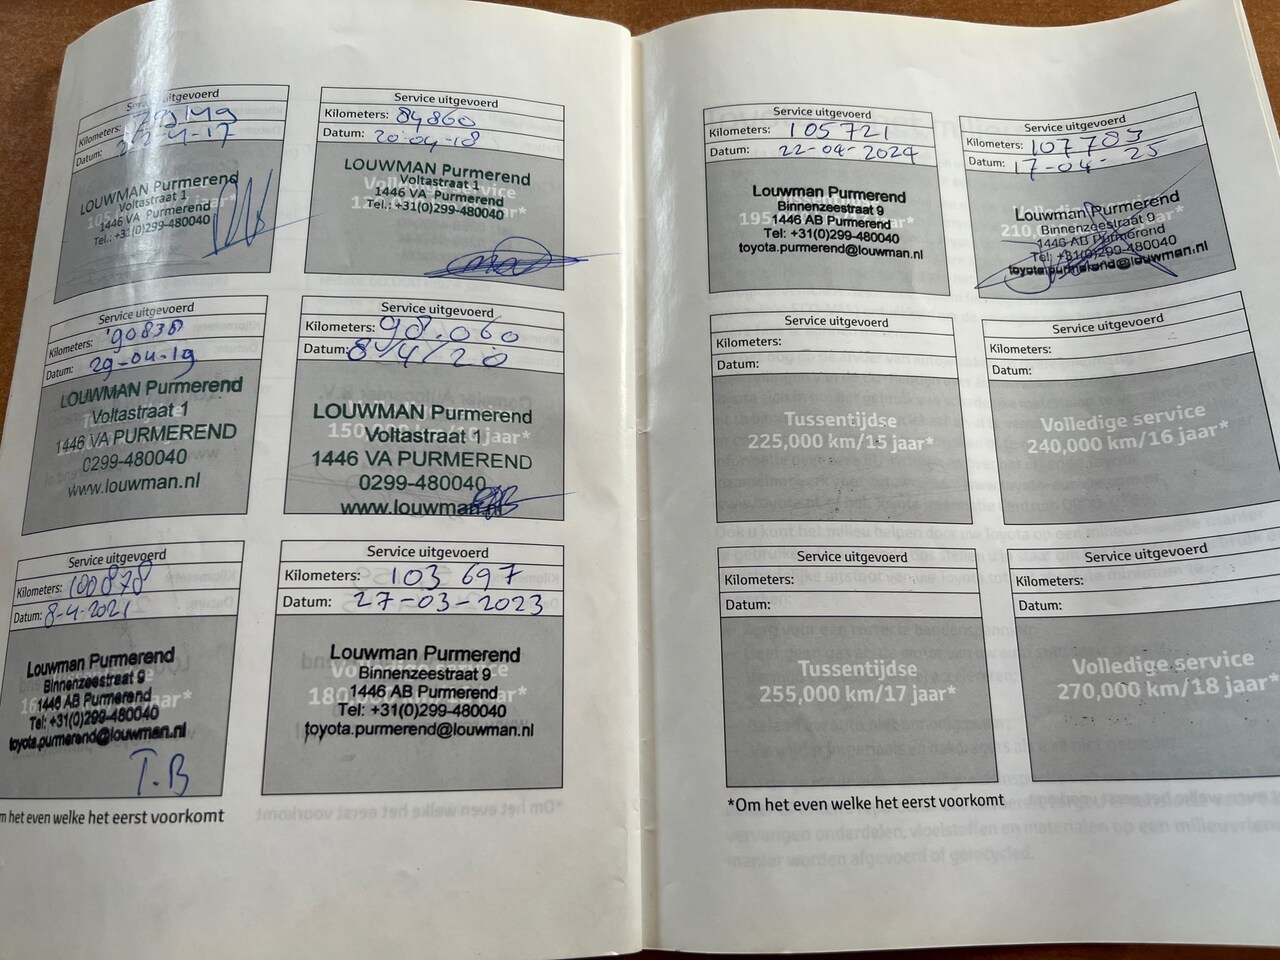 Service uitgevoerd
Kilometers:
Datum:
LOUWMAN Purmerend
Voltastraat 1
1446 VA Purmerend
Tel.: +31(0)299-480040
Service uitgevoerd
Kilometers: 84860
Datum: 20-04-18
LOUWMAN Purmerend
Voltastraat 1
1446 VA Purmerend
Tel.: +31(0)299-480040
Service uitgevoerd
Kilometers: 90838
Datum: 29-04-19
LOUWMAN Purmerend
Voltastraat 1
1446 VA PURMEREND
0299-480040
www.louwman.nl
Service uitgevoerd
Kilometers: 98.060
Datum: 8/4/20
LOUWMAN Purmerend
Voltastraat 1
1446 VA PURMEREND
0299-480040
www.louwman.nl
Service uitgevoerd
Kilometers: 100878
Datum: 8-4-2021
Louwman Purmerend
Binnenzeestraat 9
1446 AB Purmerend
Tel: +31(0)299-480040
toyota.purmerend@louwman.nl
T.B
Service uitgevoerd
Kilometers: 103 697
Datum: 27-03-2023
Louwman Purmerend
Binnenzeestraat 9
1446 AB Purmerend
Tel: +31(0)299-480040
toyota.purmerend@louwman.nl
m het even welke het eerst voorkomt
Service uitgevoerd
Kilometers: 105721
Datum: 22-04-2024
Louwman Purmerend
Binnenzeestraat 9
1446 AB Purmerend
Tel: +31(0)299-480040
toyota.purmerend@louwman.nl
Service uitgevoerd
Kilometers: 107783
Datum: 17-04-25
Louwman Purmerend
Binnenzeestraat 9
1446 AB Purmerend
Tel: +31(0)299-480040
toyota.purmerend@louwman.nl
Service uitgevoerd
Kilometers:
Datum:
Tussentijdse
225,000 km/15 jaar*
Service uitgevoerd
Kilometers:
Datum:
Volledige service
240,000 km/16 jaar*
Service uitgevoerd
Kilometers:
Datum:
Tussentijdse
255,000 km/17 jaar*
Service uitgevoerd
Kilometers:
Datum:
Volledige service
270,000 km/18 jaar*
*Om het even welke het eerst voorkomt